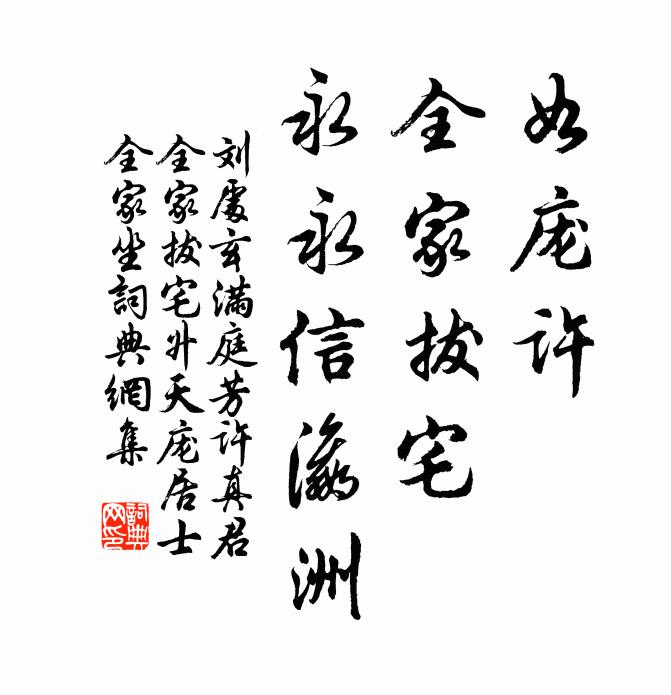 如庞许
全家拔宅
永永信瀛洲
刘處玄满庭芳许真君
全家拔宅升天庞居士
全家坐詞典網集
詞典
网印